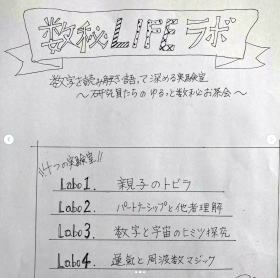 数秘LIFEラボ
数字を読み解き語って深める実験室
〜研究員たちのゆるっと数秘お茶会〜
4つの実験室!!
Labo1. 親子のトビラ
Labo2. パートナーシップと他者理解
Labo3. 数字と宇宙のヒミツ探究
Labo4. 運気と周波数マジック